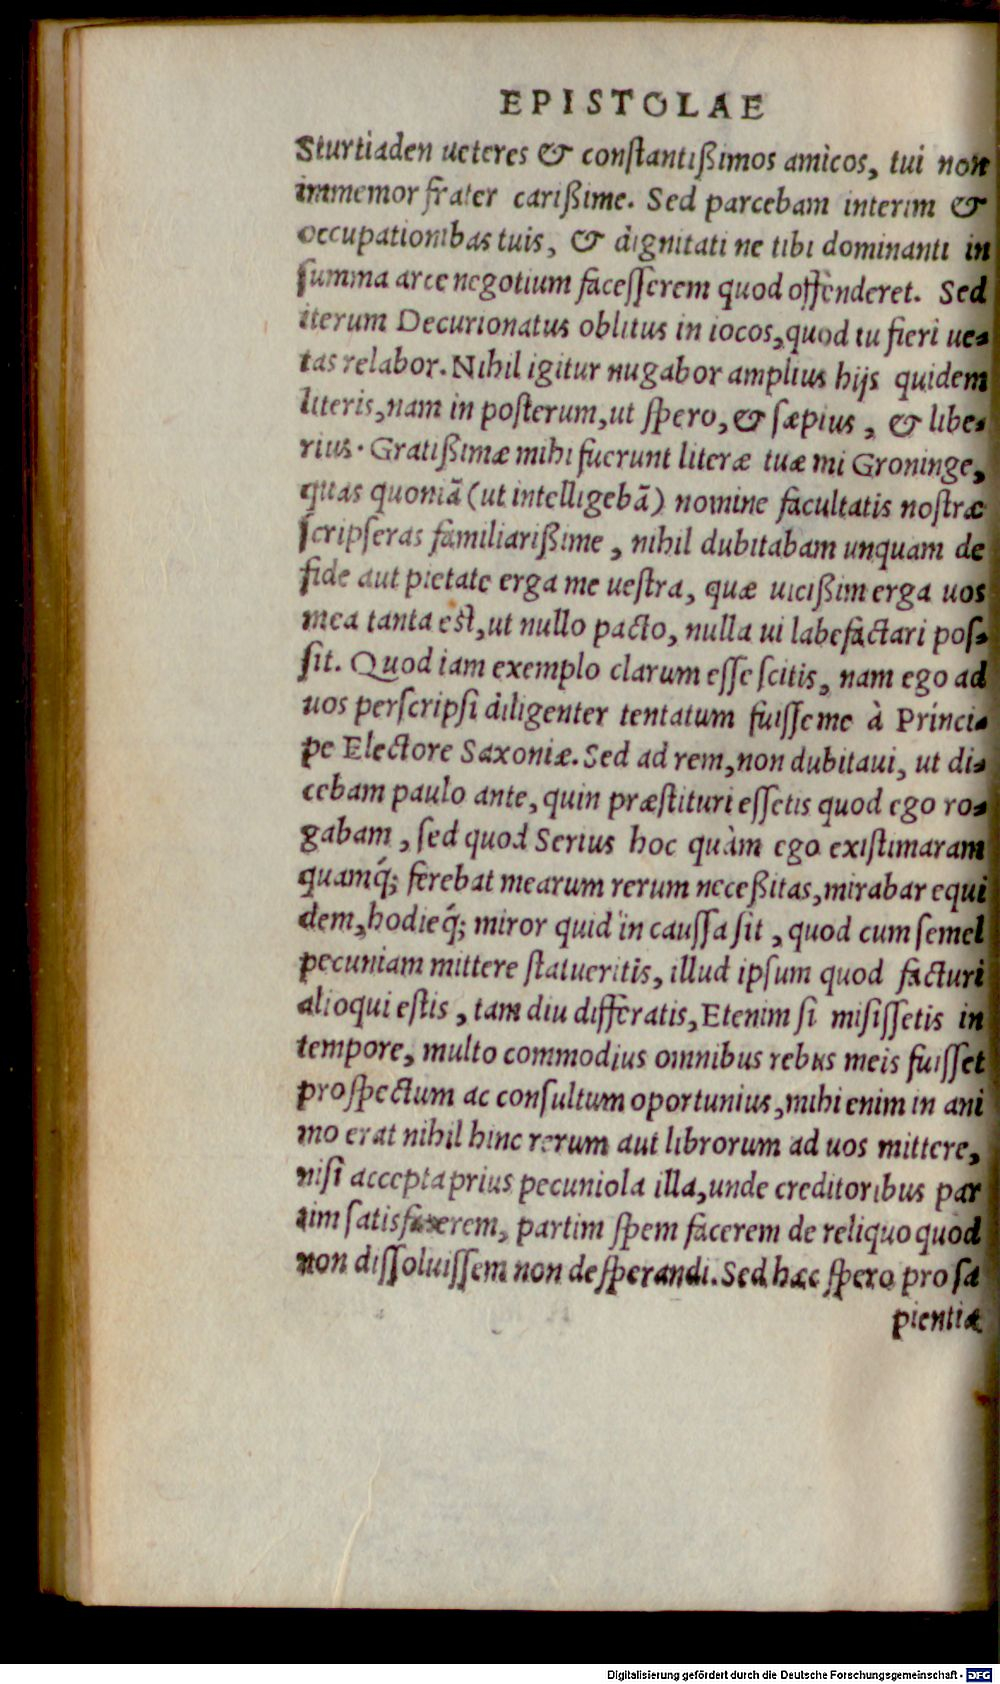 EPISTOLAE
Sturtiaden ueteres & constantißimos amicos, tui non
immemor frater carißime. Sed parcebam interim &
occupationibas tuis, & dignitati ne tibi dominanti in
summa arce negotium facesserem quod offenderet. Sed
iterum Decurionatus oblitus in iocos, quod tu fieri ue-
tas relabor. Nihil igitur nugabor amplius hijs quidem
literis, nam in posterum, ut spero, & sæpius, & libe-
rius. Gratißimæ mihi fuerunt literæ tuæ mi Groninge,
quas quoniã (ut intelligebã) nomine facultatis nostræ
scripseras familiarißime, nihil dubitabam unquam de
fide aut pietate erga me uestra, quæ uicißim erga uos
mea tanta est, ut nullo pacto, nulla ui labefactari pos-
sit. Quod iam exemplo clarum esse scitis, nam ego ad
uos perscripsi diligenter tentatum fuisse me à Princi-
pe Electore Saxoniæ. Sed ad rem, non dubitaui, ut di-
cebam paulo ante, quin præstituri essetis quod ego ro-
gabam, sed quod Serius hoc quàm ego existimaram
quamq́; ferebat mearum rerum neceßitas, mirabar equi
dem, hodieq́; miror quid in caussa sit, quod cum semel
pecuniam mittere statueritis, illud ipsum quod facturi
alioqui estis, tam diu differatis, Etenim si misissetis in
tempore, multo commodius omnibus rebus meis fuisset
prospectum ac consultum oportunius, mihi enim in ani
mo erat nihil hinc rerum aut librorum ad uos mittere,
nisi accepta prius pecuniola illa, unde creditoribus par
tim satisfacerem, partim spem facerem de reliquo quod
non dissoluissem non desperandi. Sed hæc spero pro sa
pientiæ
Digitalisierung gefördert durch die Deutsche Forschungsgemeinschaft - DFG